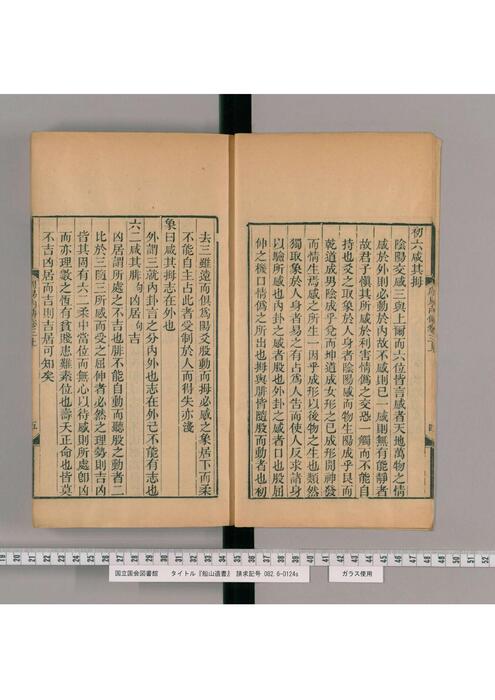 初六咸其拇
陰陽交感三與上爾而六位皆言咸者天地萬物之情
咸於外則必動於內故不咸則已一咸則無有能靜者
故君子慎其所感於利害情僞之交恐一觸而不能自
持也爻之取象於人身者陰陽感而物生陽成乎艮而
乾道成男陰成乎兌而坤道成女形之已成形開神發
而情生焉感之所生一因乎成形以後物之生也類然
獨取象於人身者易之有占爲人告而使人反求諸身
以驗所感也內卦之感者股也外卦之感者口也股屈
伸之機口情僞之所出也拇與腓皆隨股而動者也初
去三雖遠而俱爲陽爻股動而拇必感之象居下而柔
不能自主占此者受制於人而得失亦淺
象曰咸其拇志在外也
外謂三就內卦言之分內外也志在外己不能有志也
六二咸其腓句凶居句吉
凶居謂所處之不吉也腓不能自動而聽股之動者二
比於三隨三所感而受之屈伸者必然之理勢則吉凶
皆其固有六二柔中當位而無心以待感則所處卽凶
而亦理數之恆有貧賤患難素位也壽夭正命也皆莫
不吉凶居吉則吉居可知矣
五
19 20 21 22 23 24 25 26 27 28 29 30 31 32 33 34 35 36 37 38 39 40 41 42 43 44 45 46 47 48 49 50 51 52
国立国会図書館 タイトル『船山遺書』 請求記号 082.6-0124s ガラス使用